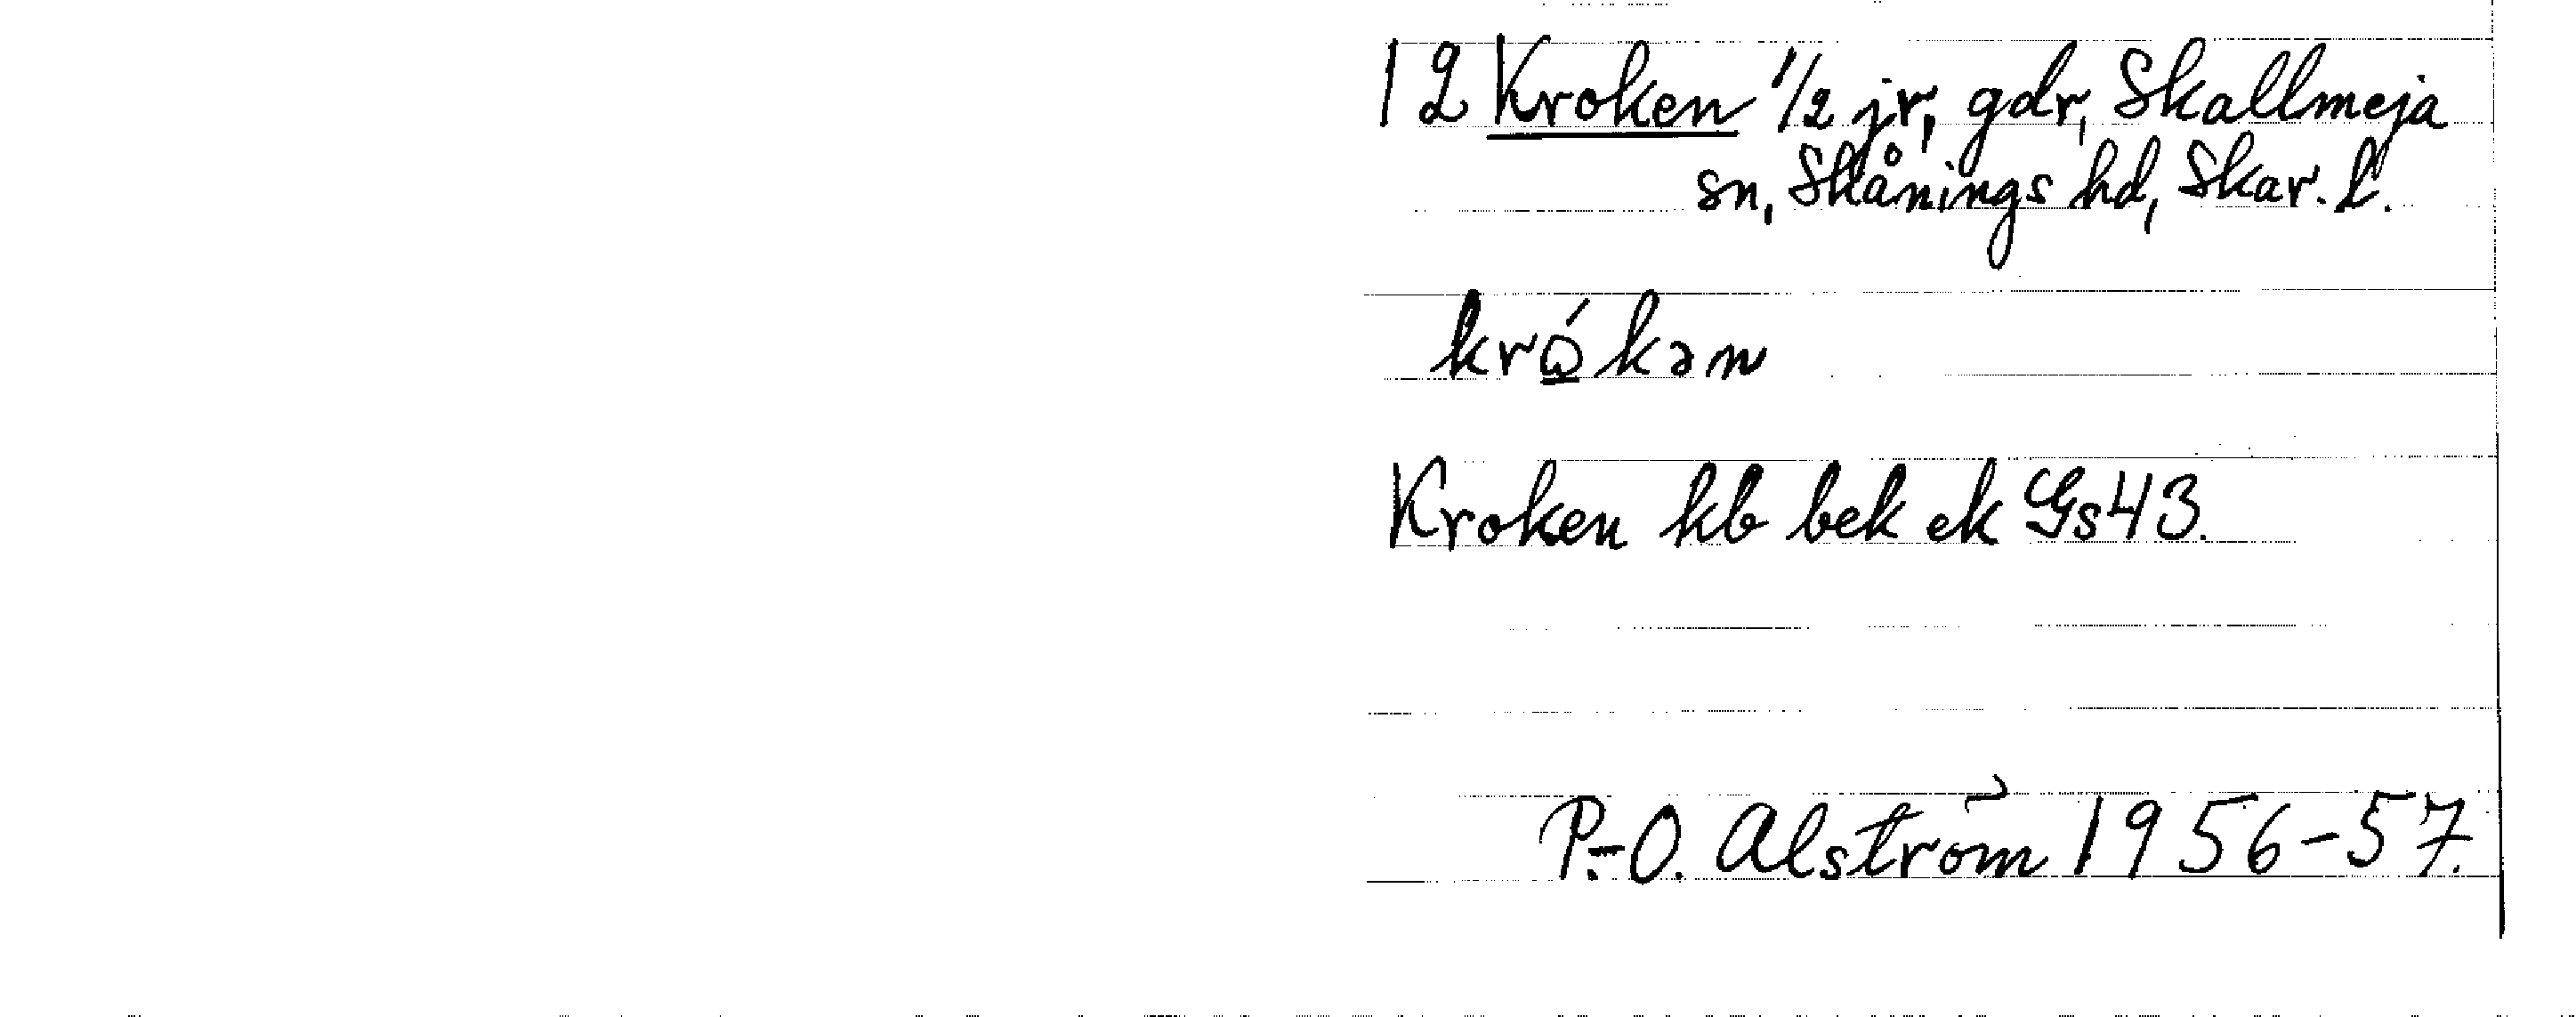 12 Kroken 1/2 jr, gdr, Skallmeja
sn, Skånings hd, Skar. l.
krǫ́kən
Kroken kb bek ek Gs43.
P.-O. Alström 1956-57.